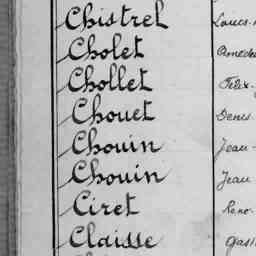 Chistrel Louis
Cholet Amédée
Chollet Félix
Chouet Denis
Chouin Jean
Chouin Jean
Ciret René
Claisse Gast